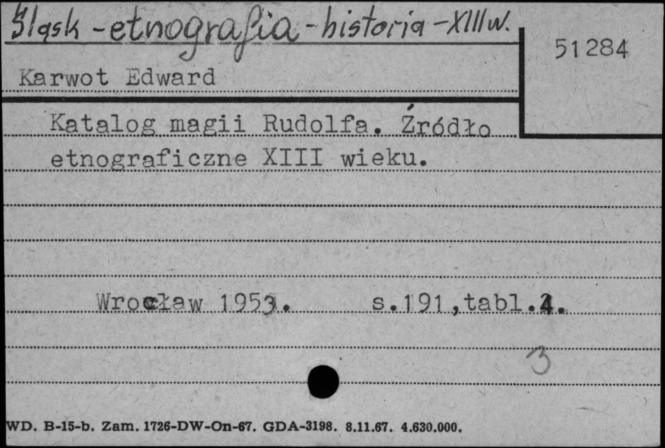 Śląsk - etnografia - historia - XIII w.
51284
Karwot Edward
Katalog magii Rudolfa. Źródło
etnograficzne XIII wieku.
Wrocław 1953. s.191,tabl.
3
WD. B-15-b. Zam. 1726-DW-On-67. GDA-3198. 8.11.67. 4.630.000.